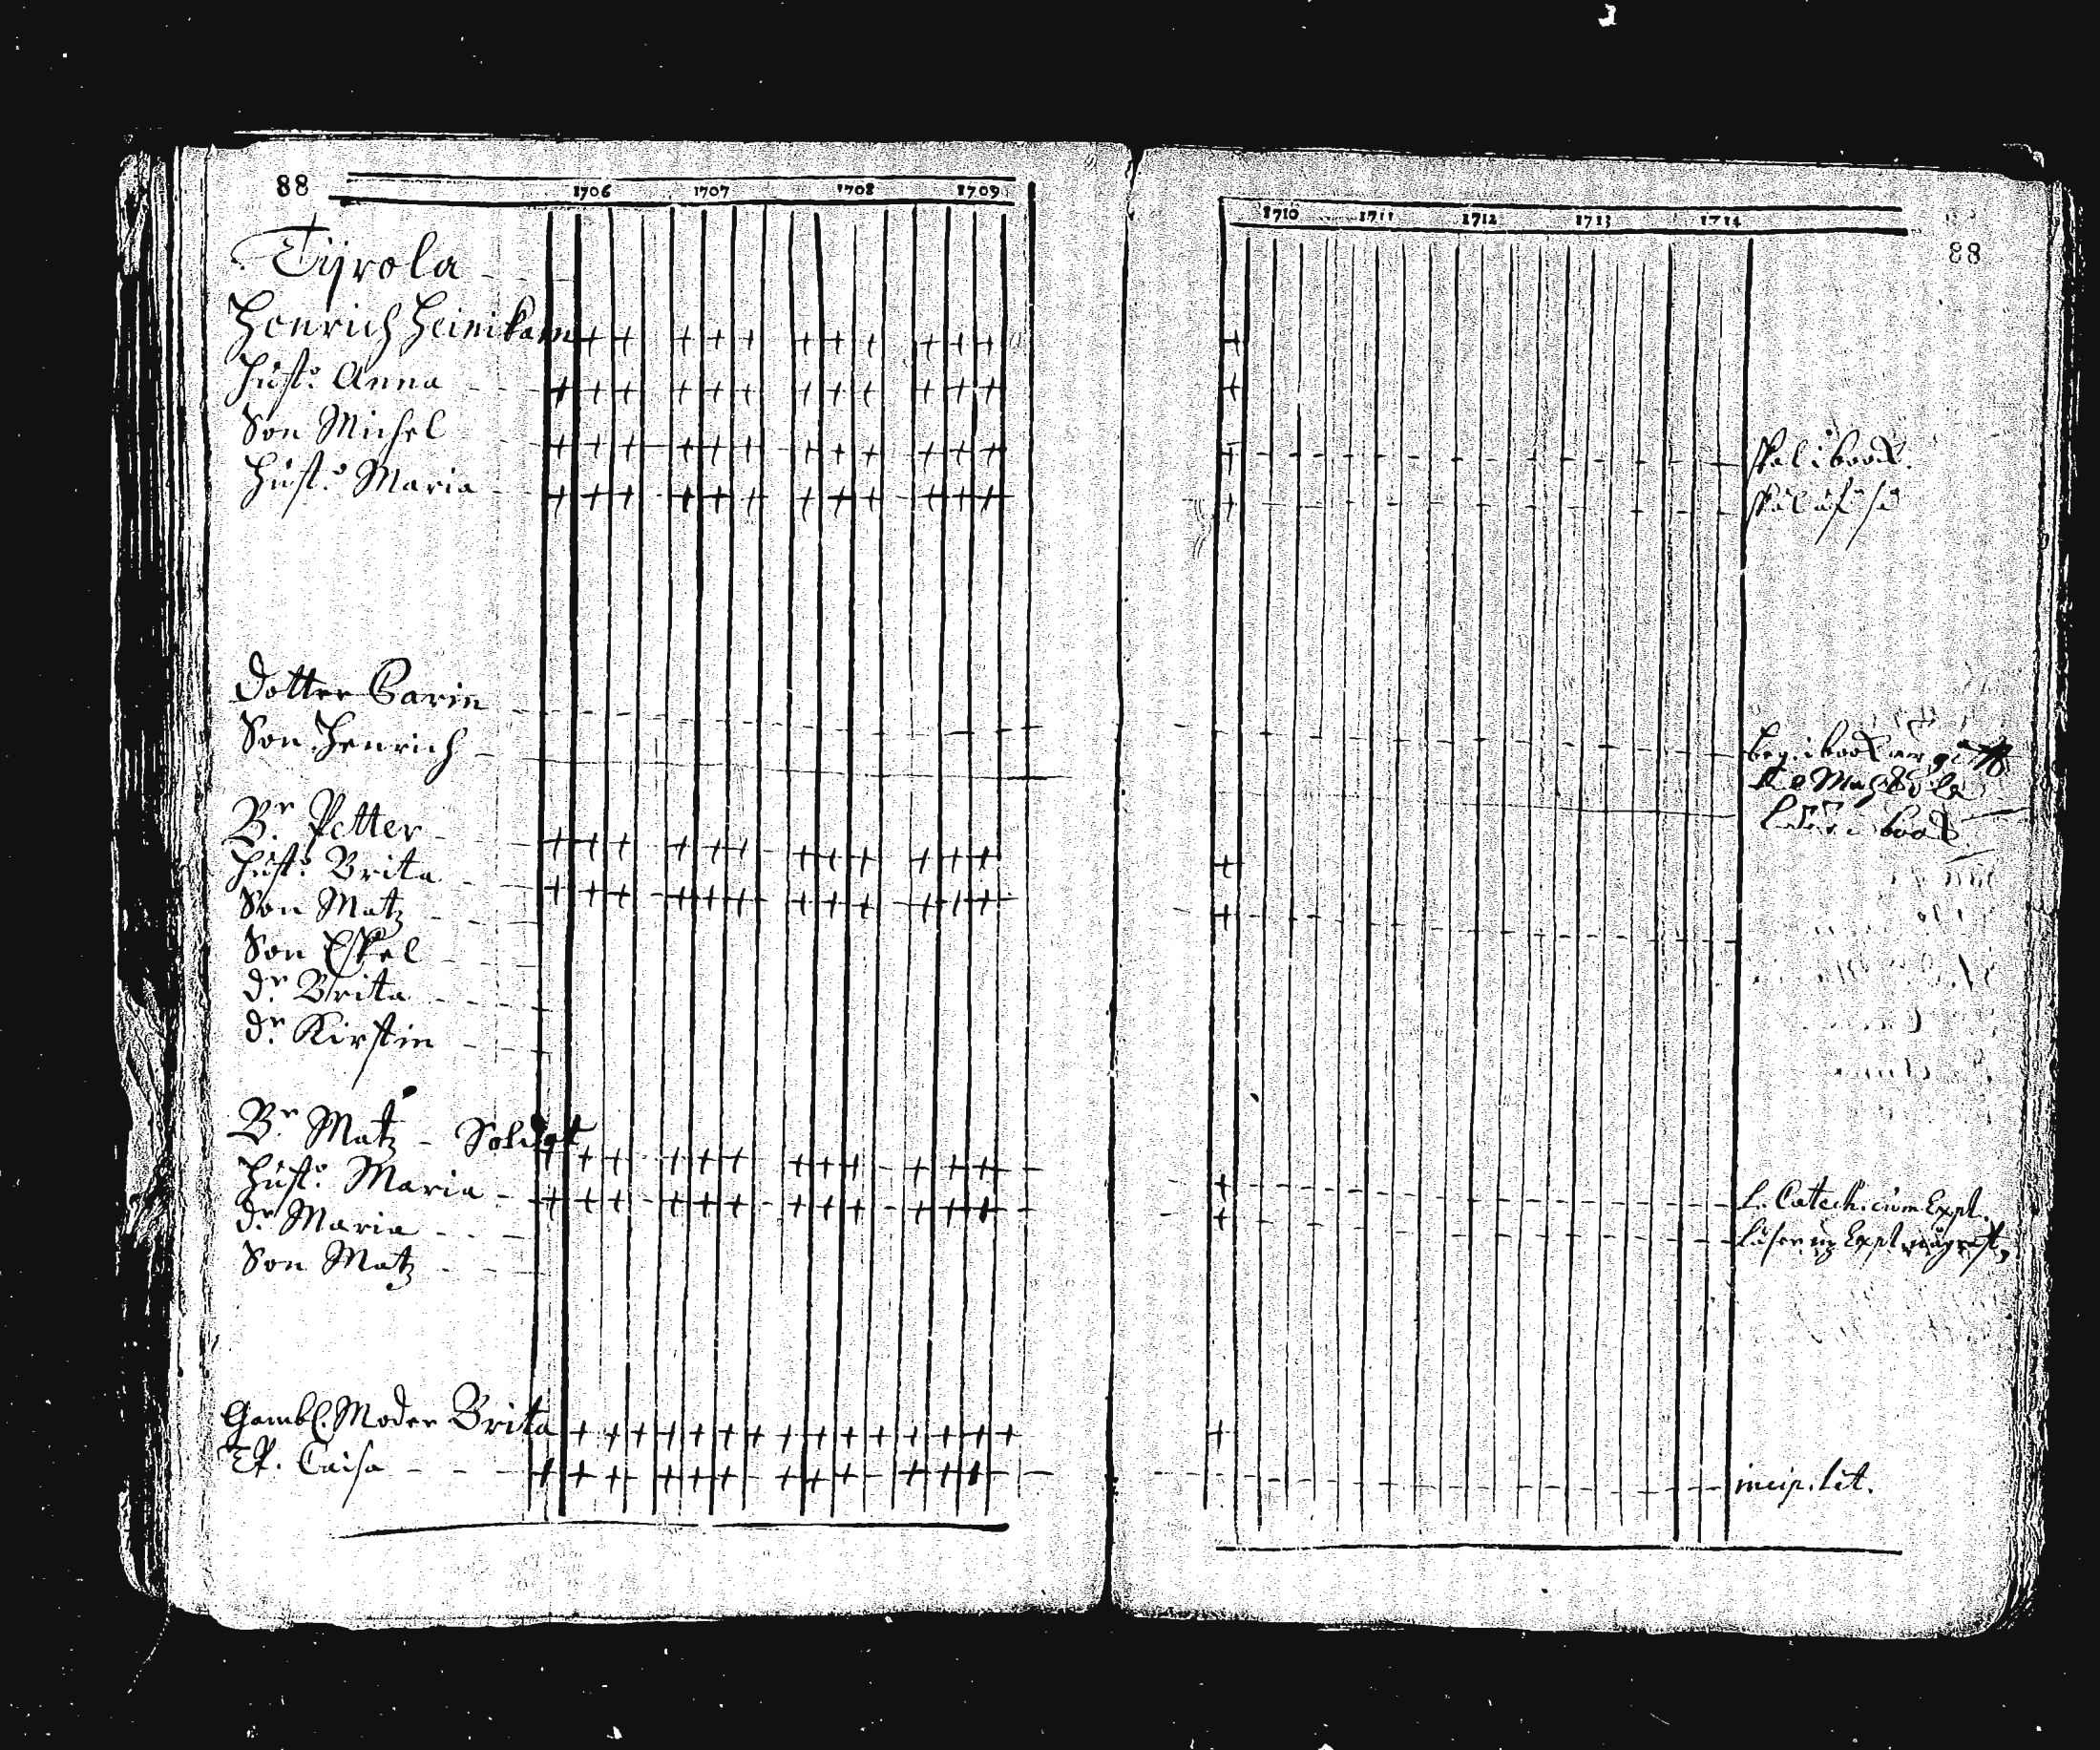 88
1706 1707 1708 1709
Tÿrola
Henrich Heinikain
Hust: Anna
Son Michel
Hust: Maria
Dotter Carin
Son Henrich
Br Petter
Hust: Brita
Son Matz
Son Eskel
dr Brita
dr Kirstin
Br Matz - Soldat
Hust: Maria
dr Maria
Son Matz
Gambl. Moder Brita
Caisa
1710 1711 1712 1713 1714
88
i book.
beg. i book
i book
L. Catech. cum Expl.
Expl.
incip. lit.